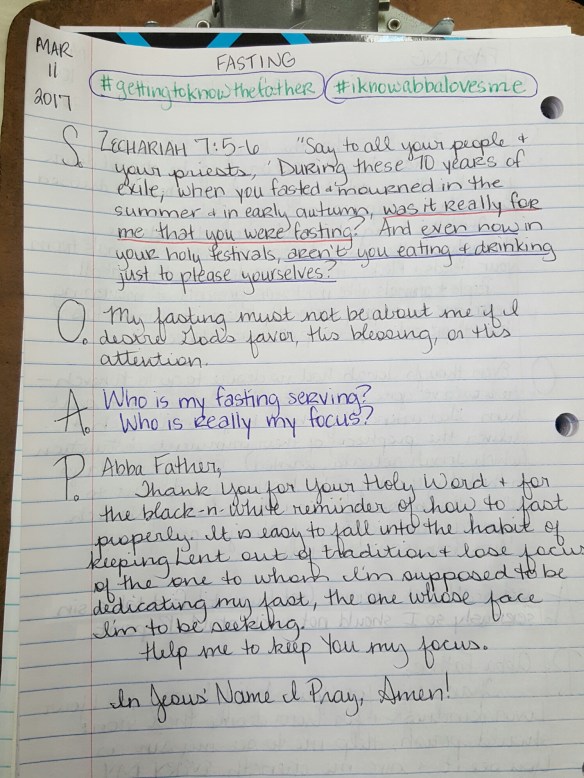 MAR
11
2017
FASTING
#gettingtoknowthefather #iknowabbalovesme
S. ZECHARIAH 7:5-6 "Say to all your people +
your priests, 'During these 70 years of
exile, when you fasted + mourned in the
summer + in early autumn, was it really for
me that you were fasting? And even now in
your holy festivals, aren't you eating + drinking
just to please yourselves?
O. My fasting must not be about me if I
desire God's favor, His blessing, or His
attention.
A. Who is my fasting serving?
Who is really my focus?
P. Abba Father,
Thank You for Your Holy Word + for
the black-n-white reminder of how to fast
properly. It is easy to fall into the habit of
keeping Lent out of tradition + lose focus
of the one to whom I'm supposed to be
dedicating my fast, the one whose face
I'm to be seeking.
Help me to keep You my focus.
In Jesus' Name I Pray, Amen!